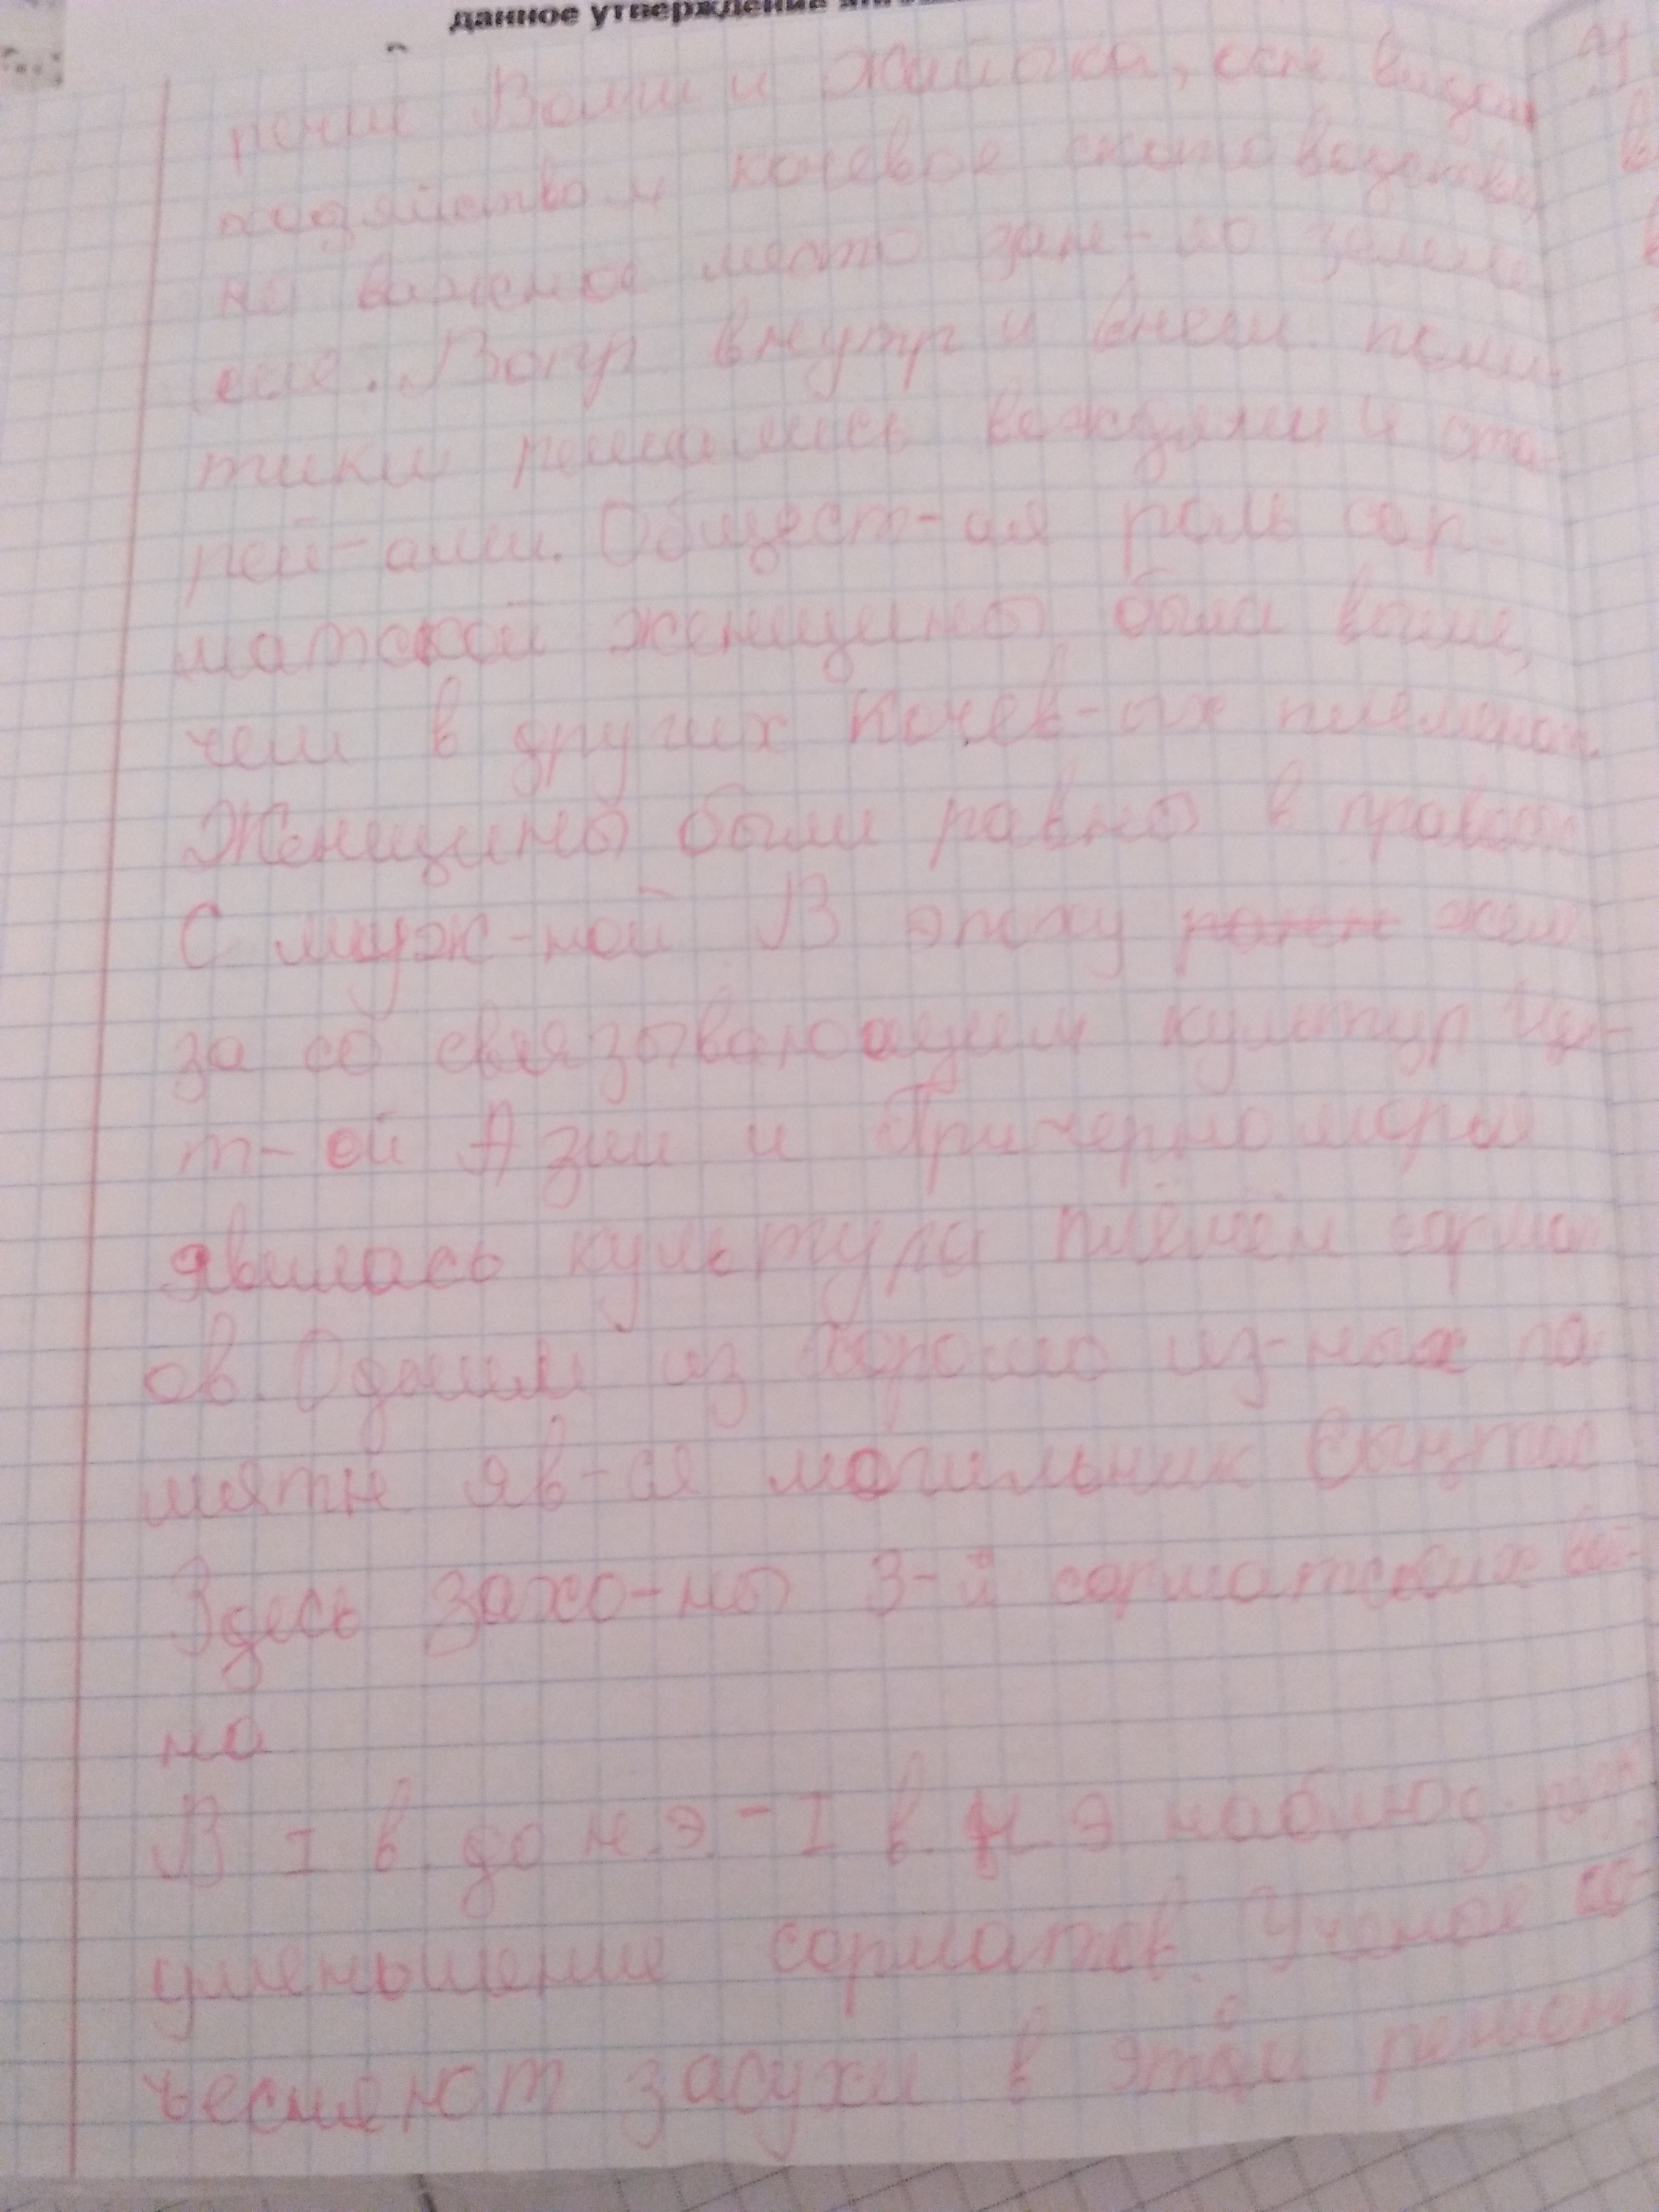 данное утверждение
Волги и Жайыка, осн видом
хозяйством кочевое скотоводство,
но важное место зани-ло земле
лие. Вопр внутр и внеш поли
тики решались вождями и ста
рей-ами. Общест-ая роль сар
матской женщины была выше,
чем в других кочев-ых племенах.
Женщины были равны в правах
С муж-ной В эпоху жел
за со связывающим культур Це-
т-ой Азии и Причерноморья
явилась культура племён сармат
ов. Одним из хорошо из-ных па
мятн яв-ся могильник
Здесь захо-ны 3-й сарматских вои-
на
В I в. до н.э - I в. н э наблюд.
уменьшение сарматов. Ученые со-
засухи в этом